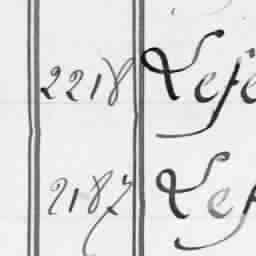 2218 Lefe
2187 Lef